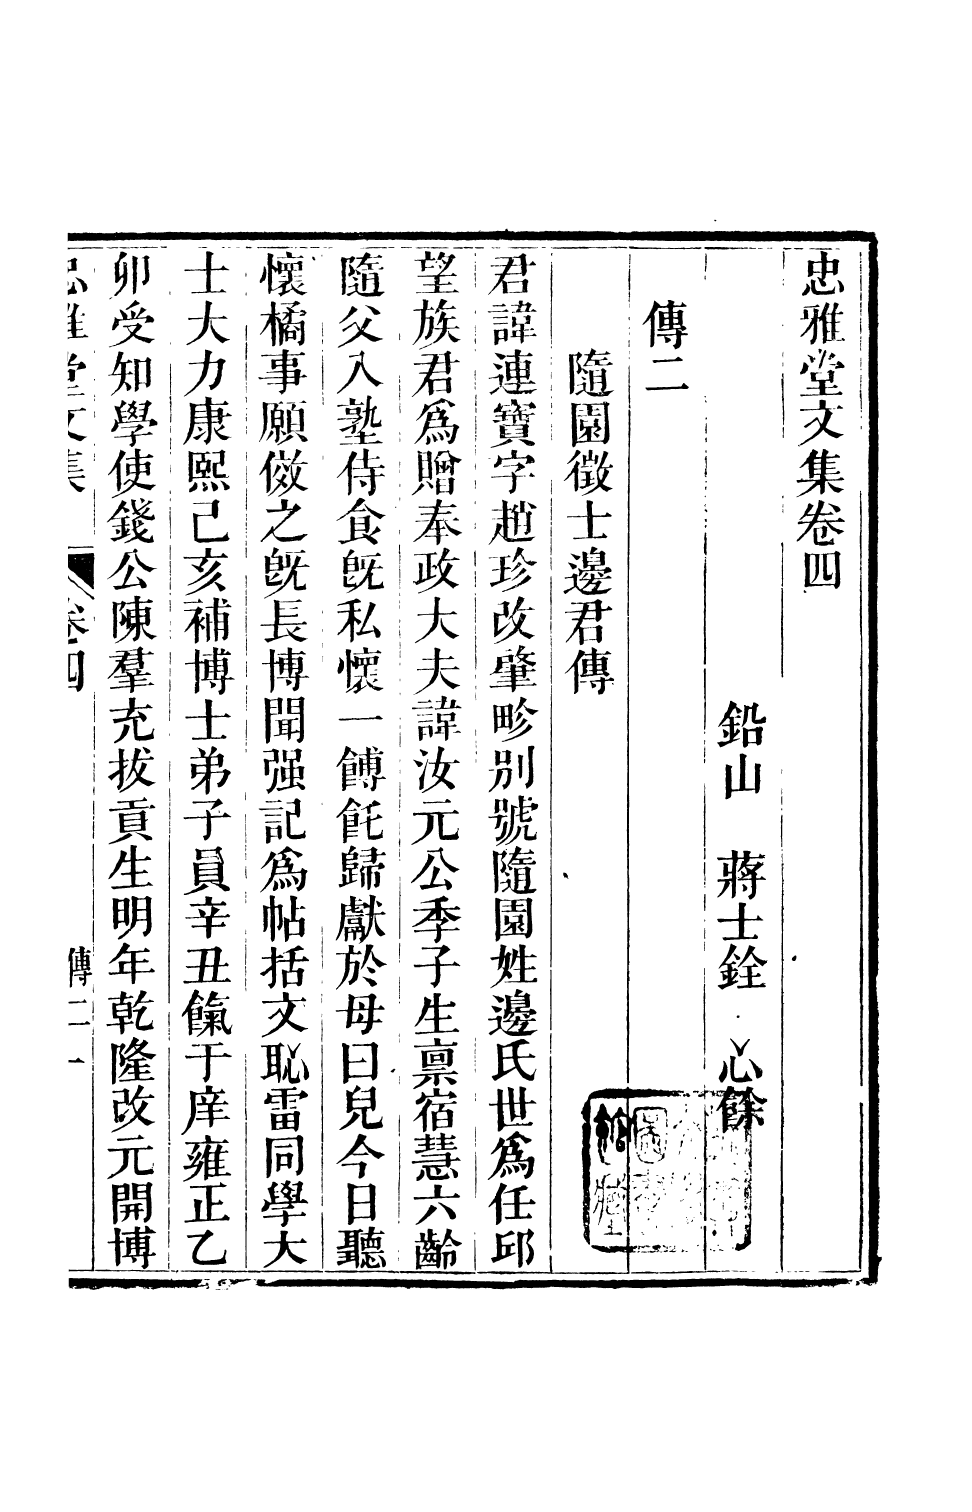 忠雅堂文集卷四
鉛山　蔣士銓　心餘
傳二
隨園徵士邊君傳
君諱連寶字趙珍改肇畛別號隨園姓邊氏世爲任邱
望族君爲贈奉政大夫諱汝元公季子生稟宿慧六齡
隨父入塾侍食旣私懷一餺飥歸獻於母曰兒今日聽
懷橘事願傚之旣長博聞强記爲帖括文恥雷同學大
士大力康熙己亥補博士弟子員辛丑餼于庠雍正乙
卯受知學使錢公陳羣充拔貢生明年乾隆改元開博
忠雅堂文集　卷四　傳二　一